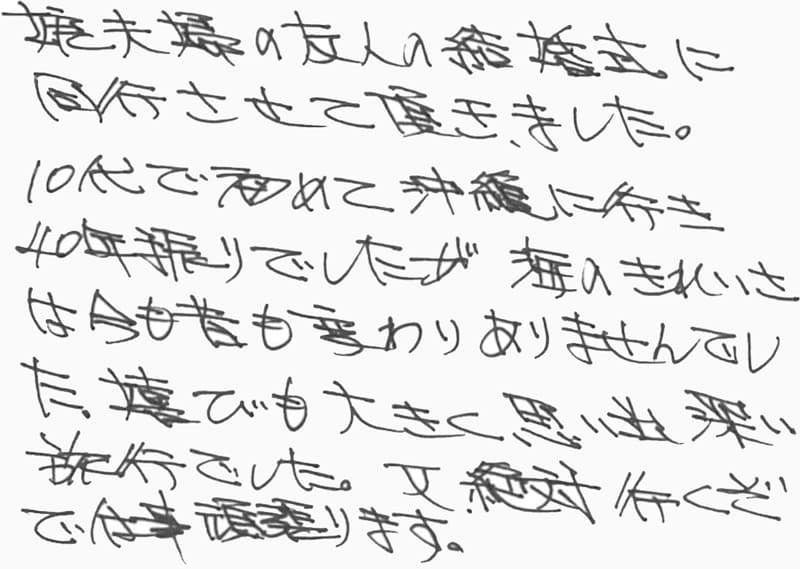 姪夫婦の友人の結婚式に
同行させて頂きました。
10代で初めて沖縄に行き
40年振りでしたが 海のきれいさ
は今も昔も変わりありませんでし
た。喜びも大きく思い出深い
旅行でした。又絶対行くぞ
で仕事頑張ります。